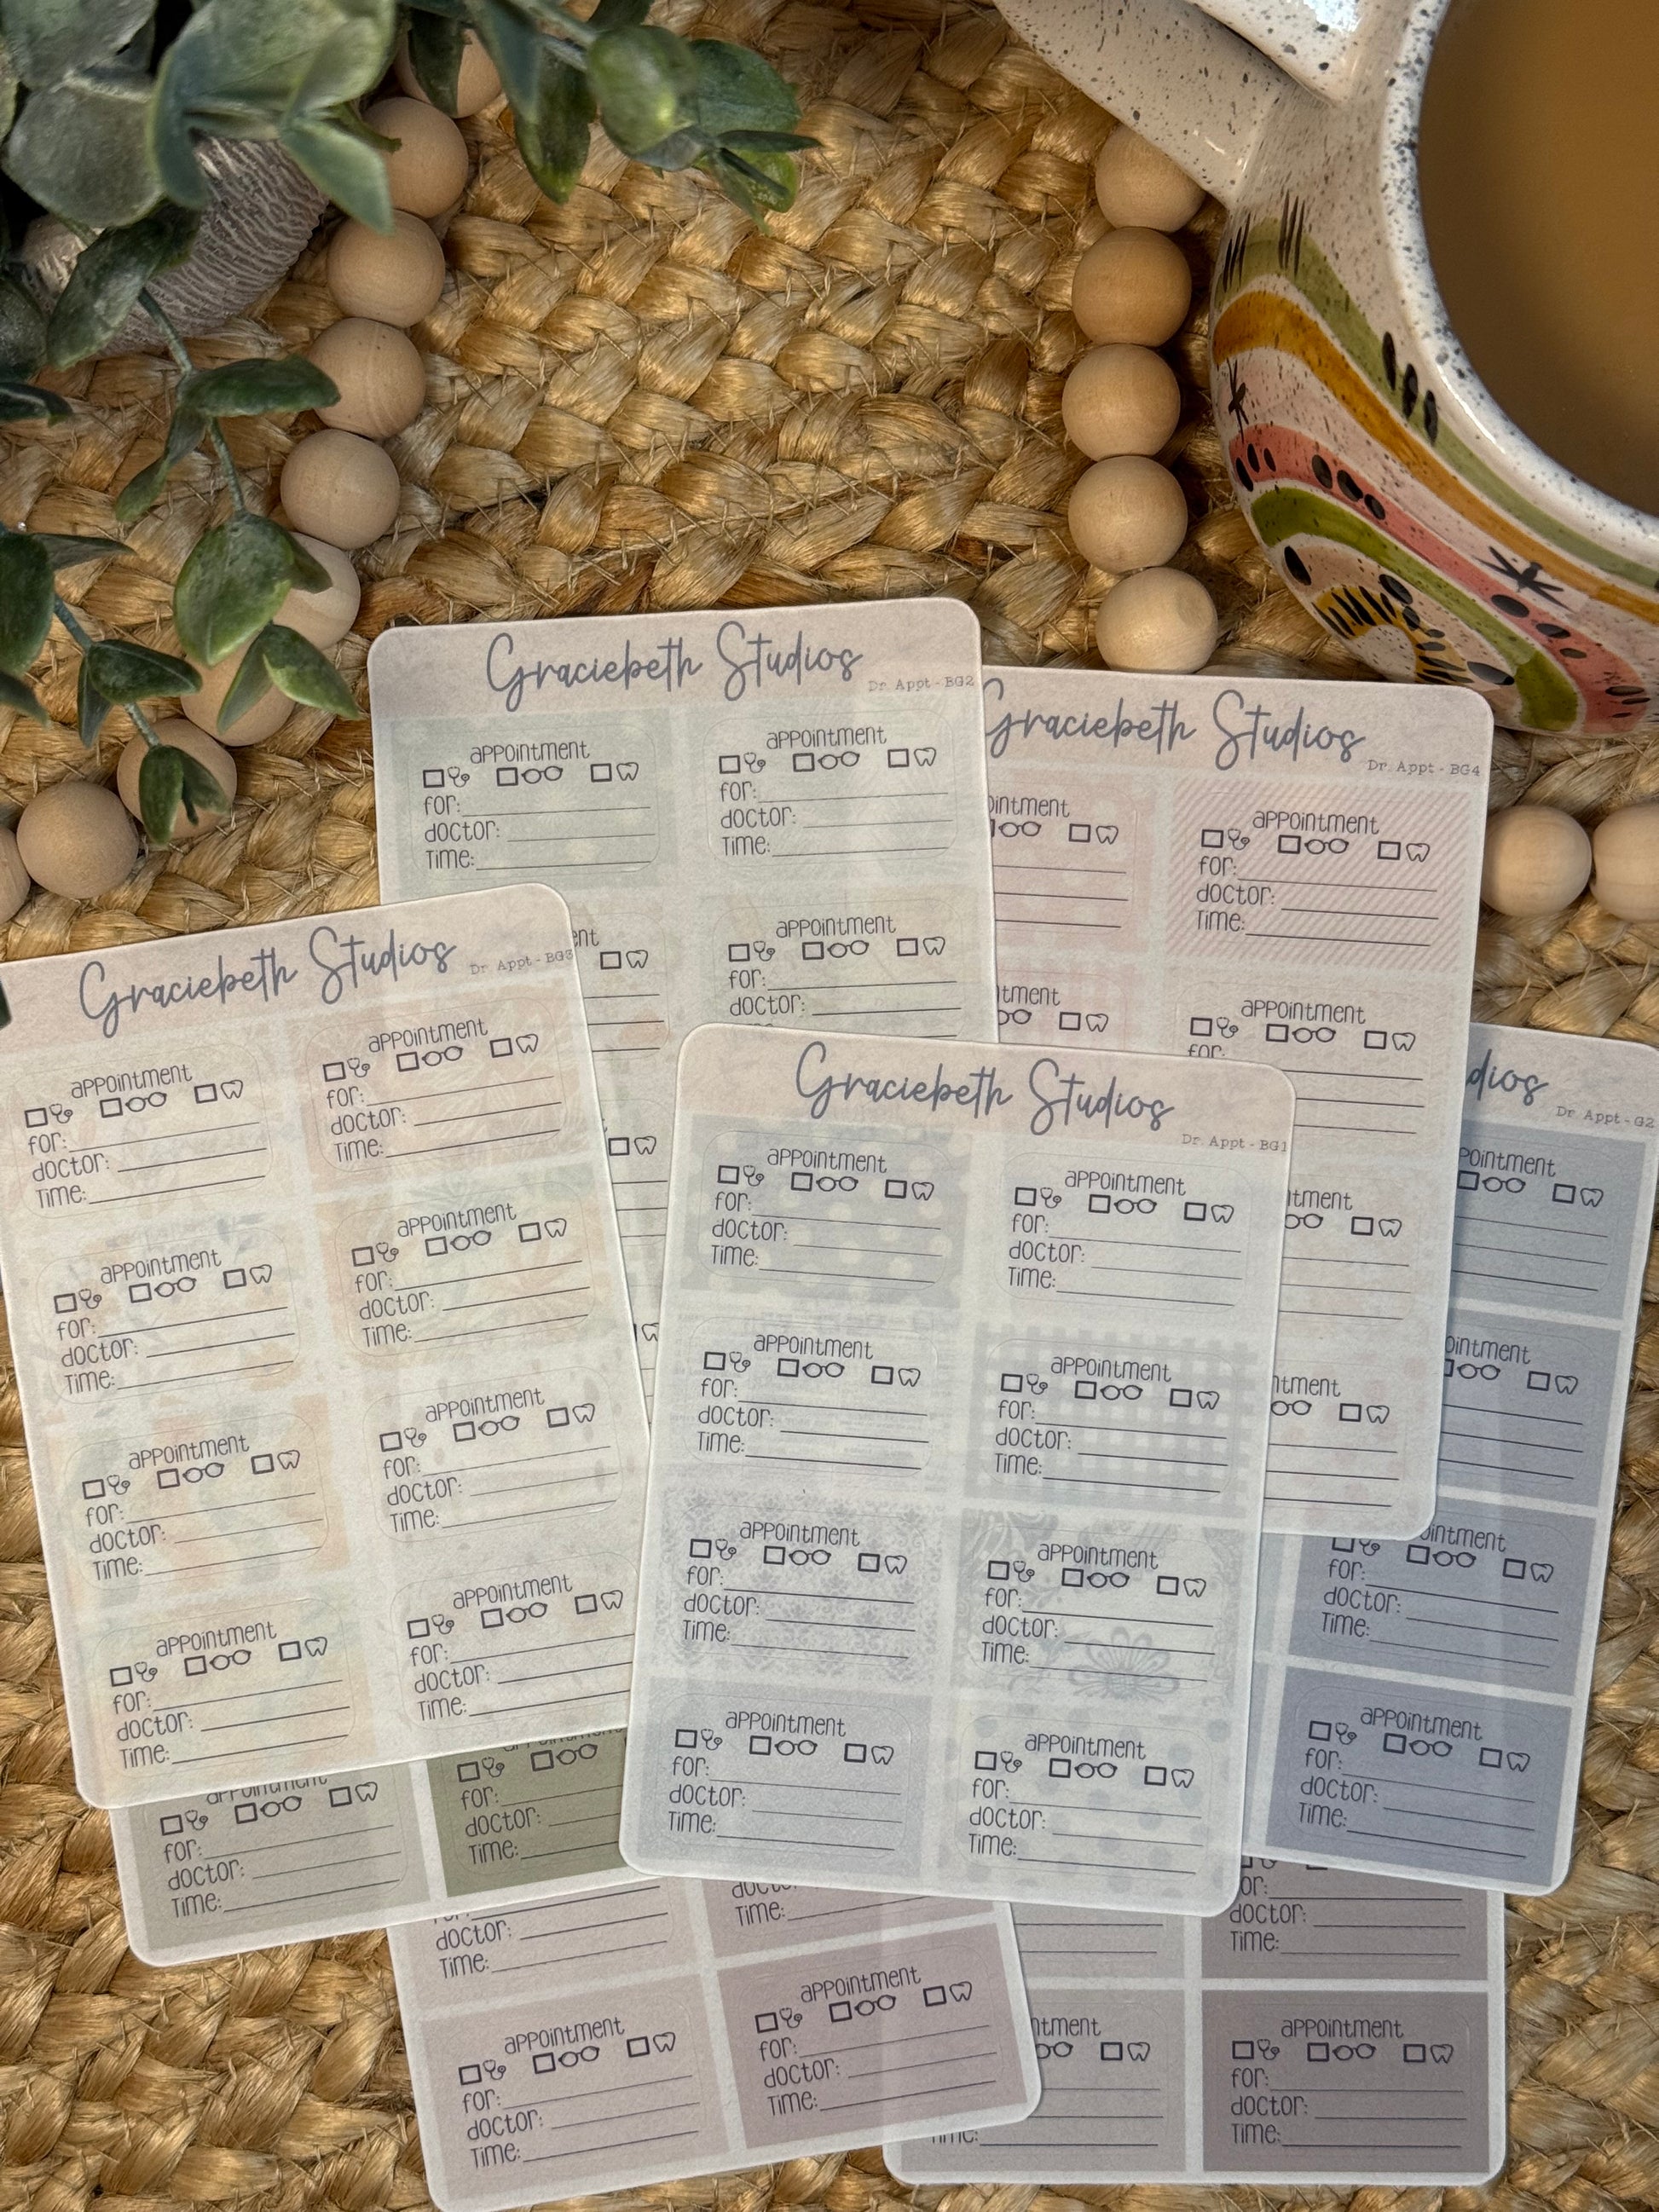 Graciebeth Studios
Dr. Appt - BG2
appointment
for:
doctor:
Time:
appointment
for:
doctor:
Time:
appointment
for:
doctor:
Graciebeth Studios
Dr. Appt - BG4
appointment
for:
doctor:
Time:
appointment
for:
Graciebeth Studios
Dr. Appt - BG3
appointment
for:
doctor:
Time:
appointment
for:
doctor:
Time:
appointment
for:
doctor:
Time:
appointment
for:
doctor:
Time:
appointment
for:
doctor:
Time:
appointment
for:
doctor:
Time:
appointment
for:
doctor:
Time:
appointment
for:
doctor:
Time:
Graciebeth Studios
Dr. Appt - BG1
appointment
for:
doctor:
Time:
appointment
for:
doctor:
Time:
appointment
for:
doctor:
Time:
appointment
for:
doctor:
Time:
appointment
for:
doctor:
Time:
appointment
for:
doctor:
Time:
appointment
for:
doctor:
Time:
appointment
for:
doctor:
Time:
Dr. Appt - G2
for:
doctor:
Time:
appointment
for:
doctor:
Time:
appointment
for:
doctor:
Time:
for:
doctor:
Time:
doctor:
Time:
Time:
appointment
for:
doctor:
Time:
appointment
for:
doctor:
Time:
doctor:
Time:
appointment
for:
doctor:
Time: